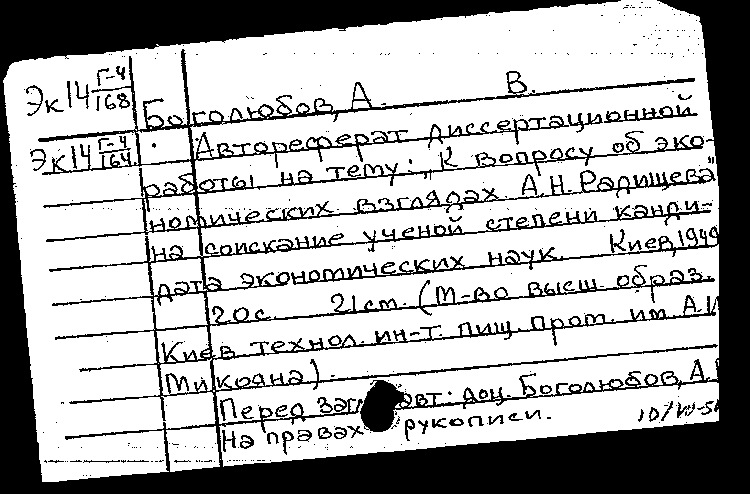 Эк14 Г-4/168
Боголюбов, А. В.
Эк14 Г-4/164
Автореферат диссертационной
работы на тему: „К вопросу об эко-
номических взглядах А.Н. Радищева"
на соискание ученой степени канди-
дата экономических наук. Киев, 1949
20с. 21см. (М-во высш. образ.
Киев. технол. ин-т. пищ. пром. им. А.И
Микояна).
Перед загл. авт: доц. Боголюбов, А.
На правах рукописи.